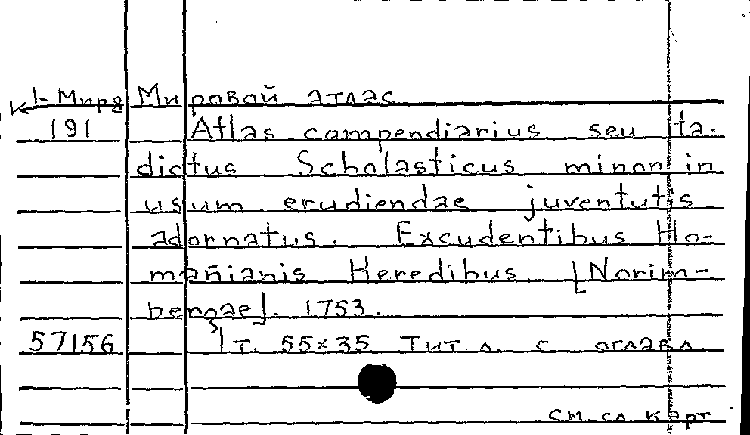 К 1-Мира Мировой атлас
191 Atlas campendiarius seu ta-
dictus Scholasticus minor in
usum erudiendae juventutis
adornatus. Excudentibus Ho-
mañianis Heredibus [Norim-
bergae]. 1753.
57156 1 т. 55×35 Тит л. с оглавл
см. сл карт